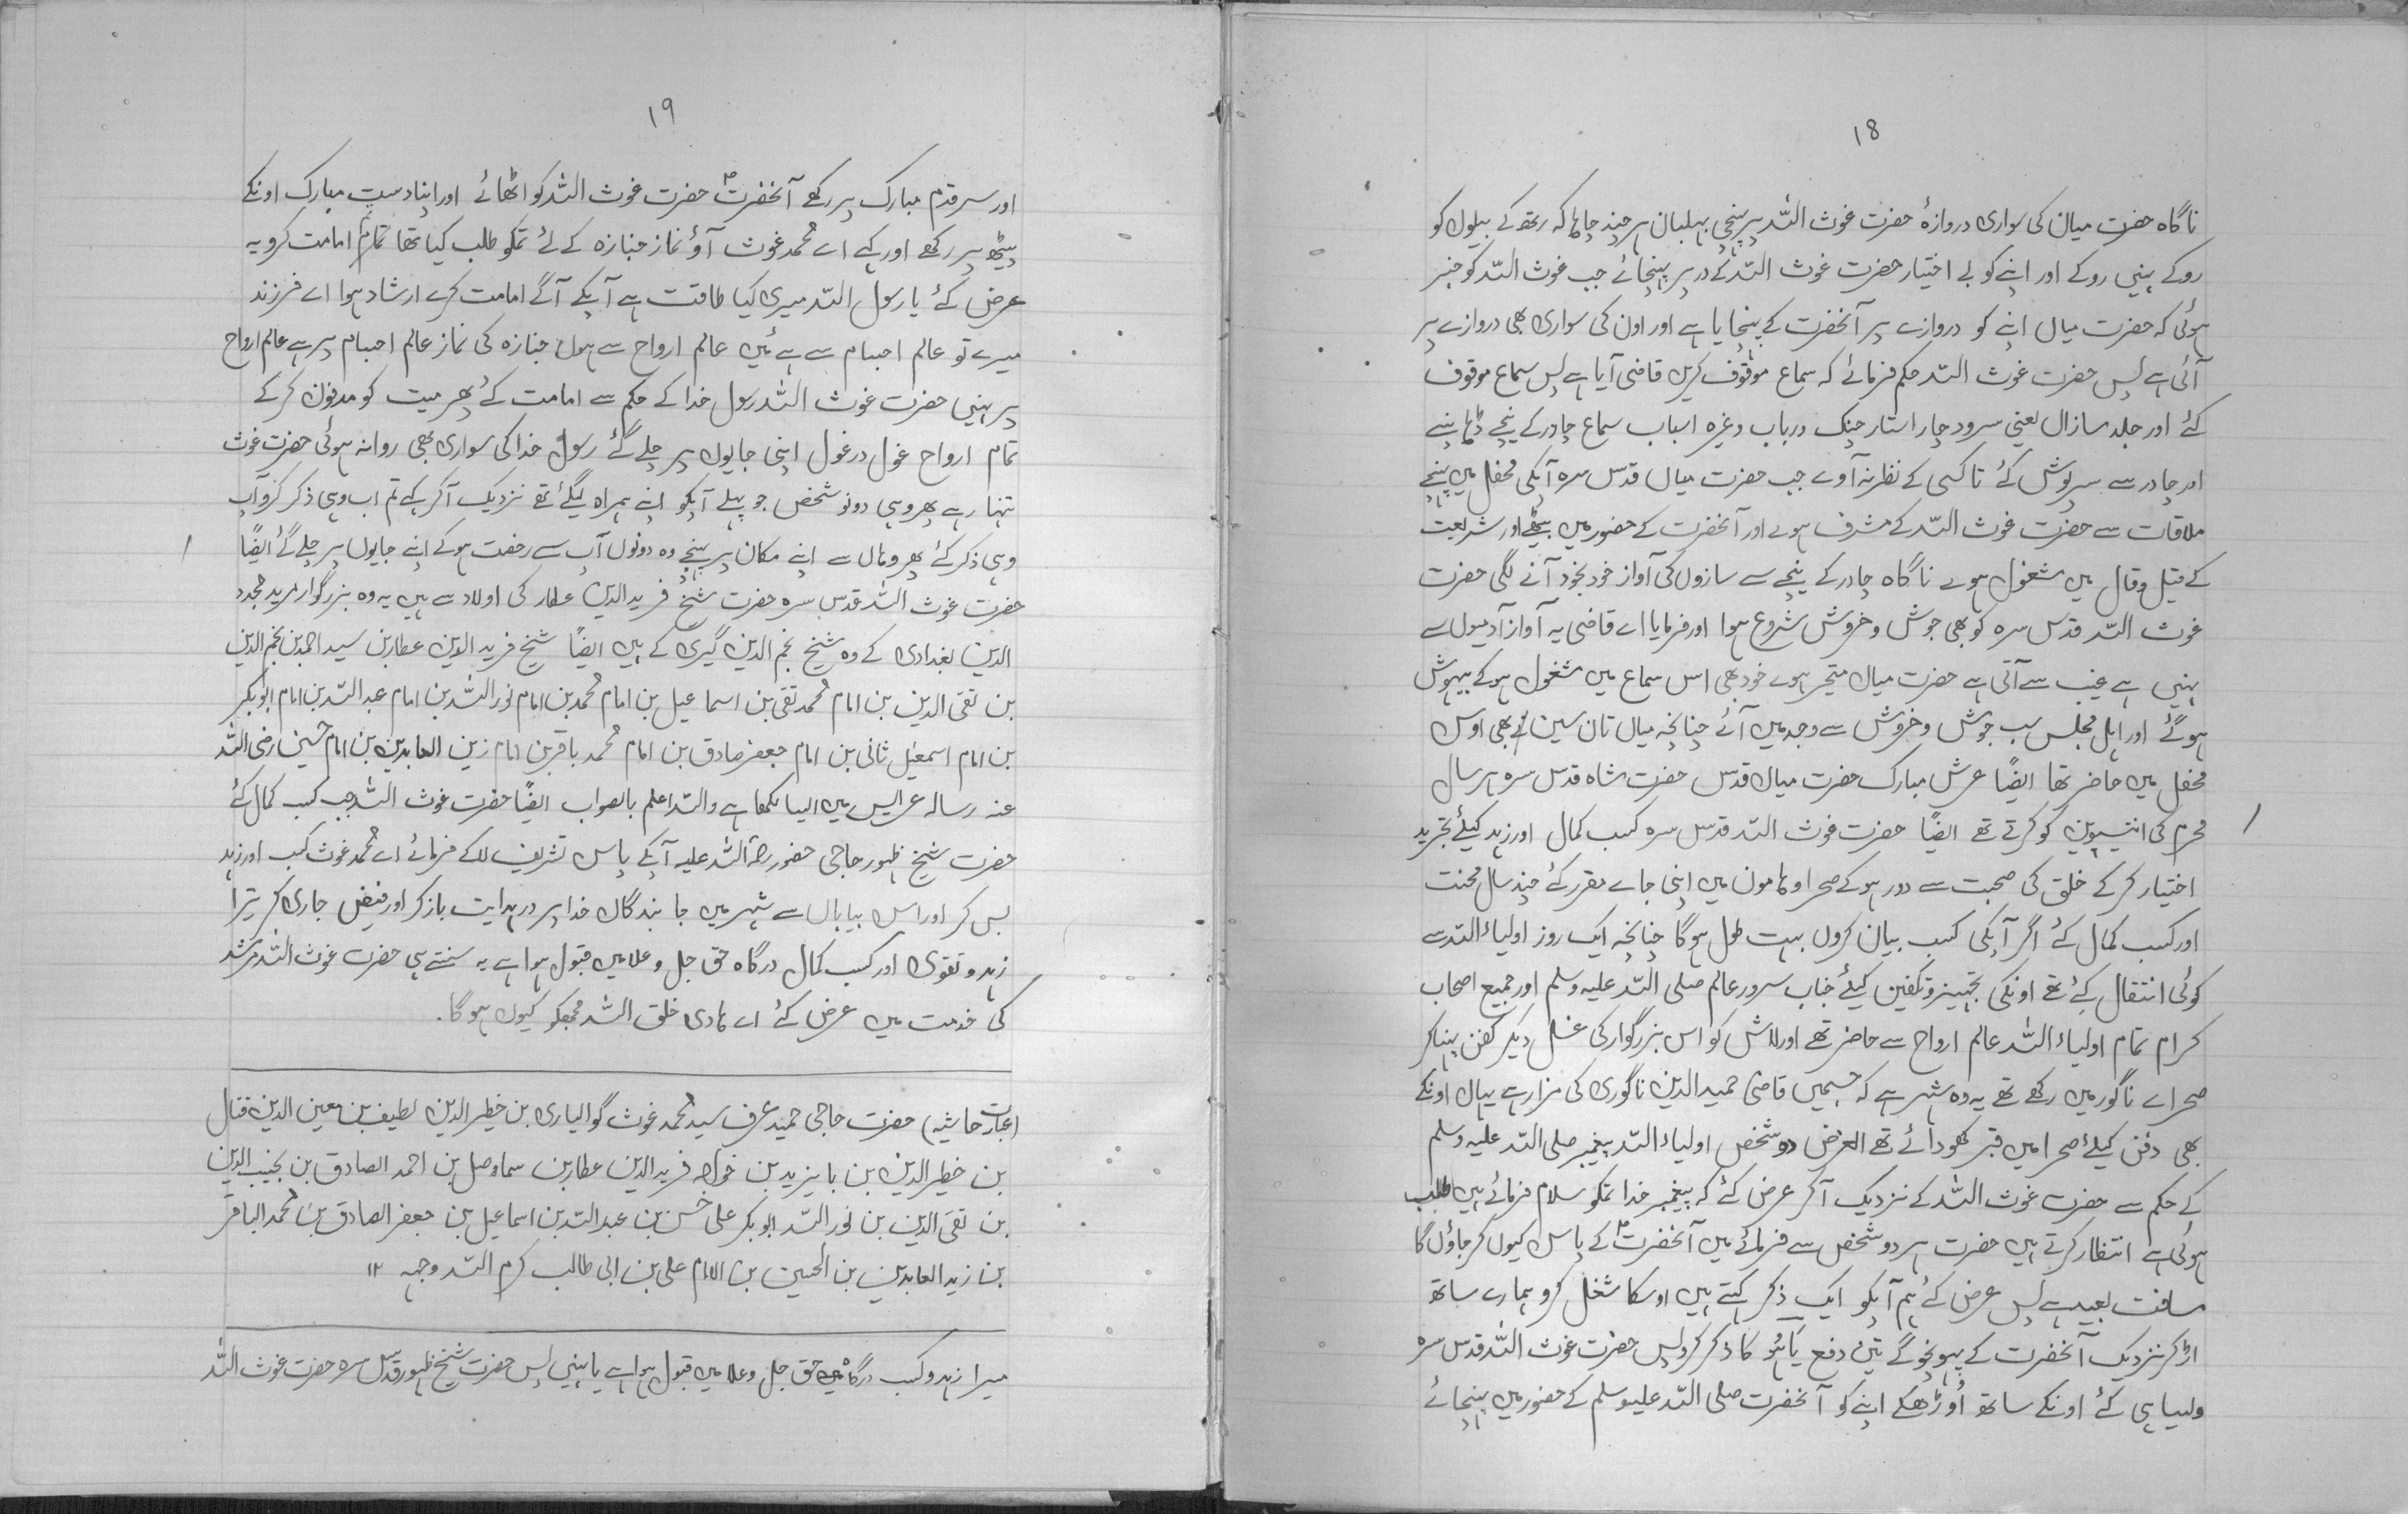 ۱۸
ناگاہ حضرت میاں کی سواری دروازۂ حضرت غوث اللہ پر پہنچی بہلبان ہر چند چاہا کہ رتھ کے بیلوں کو
روکے نہیں روکے اور اپنے کو بے اختیار حضرت غوث اللہ کے در پر پہنچائے جب غوث اللہ کو خبر
ہوئی کہ حضرت میاں اپنے کو دروازے پر آنحضرت کے پہنچایا ہے اور اون کی سواری بھی دروازے پر
آئی ہے پس حضرت غوث اللہ حکم فرمائے کہ سماع موقوف کریں قاضی آیا ہے پس سماع موقوف
کئے اور جلد سازاں یعنی سرود چار استار چنک و رباب وغیرہ اسباب سماع چادر کے نیچے ڈھانپے
اور چادر سے سرپوش کئے تا کسی کے نظر نہ آوے جب حضرت میاں قدس سرہ آپکی محفل میں پہنچے
ملاقات سے حضرت غوث اللہ کے مشرف ہوے اور آنحضرت کے حضور میں بیٹھے اور شریعت
کے قیل و قال میں مشغول ہوے ناگاہ چادر کے نیچے سے سازوں کی آواز خود بخود آنے لگی حضرت
غوث اللہ قدس سرہ کو بھی جوش و خروش شروع ہوا اور فرمایا اے قاضی یہ آواز آدمیوں سے
نہیں ہے غیب سے آتی ہے حضرت میاں متحیر ہوے خود بھی اس سماع میں مشغول ہو کے بیہوش
ہوگئے اور اہل مجلس سب جوش و خروش سے وجد میں آئے چنانچہ میاں تان سین نے بھی اوس
محفل میں حاضر تھا ایضًا عرش مبارک حضرت میاں قدس حضرت شاہ قدس سرہ ہر سال
محرم کی انتیسویں کو کرتے تھے ایضًا حضرت غوث اللہ قدس سرہ کسب کمال اور زہد کیلئے تجرید
اختیار کر کے خلق کی صحبت سے دور ہو کے صحرا و ہامون میں اپنی جاے مقرر کئے چند سال محنت
اور کسب کمال کے اگر آپکی کسب بیان کروں بہت طول ہوگا چنانچہ ایک روز اولیاء اللہ سے
کوئی انتقال کئے تھے اونکی تجہیز و تکفین کیلئے جناب سرور عالم صلی اللہ علیہ وسلم اور جمیع اصحاب
کرام تمام اولیاء اللہ عالم ارواح سے حاضر تھے اور لاش کو اس بزرگوار کی غسل دیکر کفن پہنا کر
صحراے ناگور میں رکھے تھے یہ وہ شہر ہے کہ جسمیں قاضی حمید الدین ناگوری کی مزار ہے یہاں اونکے
بھی دفن کیلئے صحرا میں قبر کھودائے تھے الغرض دو شخص اولیاء اللہ پیغمبر صلی اللہ علیہ وسلم
کے حکم سے حضرت غوث اللہ کے نزدیک آکر عرض کئے کہ پیغمبر خدا تمکو سلام فرمائے ہیں طلب
ہوئی ہے انتظار کرتے ہیں حضرت ہر دو شخص سے فرمائے میں آنحضرتؐ کے پاس کیوں کر جاؤں گا
مسافت بعید ہے پس عرض کئے ہم آپکو ایک ذکر کہتے ہیں اوسکا شغل کرو ہمارے ساتھ
اڑ کر نزدیک آنحضرت کے پہونچو گے تین دفع یاہُو کا ذکر کرو پس حضرت غوث اللہ قدس سرہ
ولیسا ہی کئے اونکے ساتھ اُوڑھکے اپنے کو آنحضرت صلی اللہ علیہ وسلم کے حضور میں پہنچائے
۱۹
اور سر قدم مبارک پر رکھے آنحضرتؐ حضرت غوث اللہ کو اٹھائے اور اپنا دست مبارک اونکے
پیٹھ پر رکھے اور کہے اے محمد غوث آؤ نماز جنازہ کے لئے تمکو طلب کیا تھا تمام امامت کرو یہ
عرض کئے یا رسول اللہ میری کیا طاقت ہے آپکے آگے امامت کرے ارشاد ہوا اے فرزند
میرے تو عالم اجسام سے ہے میں عالم ارواح سے ہوں جنازہ کی نماز عالم اجسام پر ہے عالم ارواح
پر نہیں حضرت غوث اللہ رسول خدا کے حکم سے امامت کئے پھر میت کو مدفون کر کے
تمام ارواح غول در غول اپنی جایوں پر چلے گئے رسول خدا کی سواری بھی روانہ ہوئی حضرت غوث
تنہا رہے پھر وہی دونو شخص جو پہلے آپکو اپنے ہمراہ لیگئے تھے نزدیک آکر کہے تم اب وہی ذکر کرو آپ
وہی ذکر کئے پھر وہاں سے اپنے مکان پر پہنچے وہ دونوں آپ سے رخصت ہو کے اپنے جایوں پر چلے گئے ایضًا
حضرت غوث اللہ قدس سرہ حضرت شیخ فرید الدین عطار کی اولاد سے ہیں یہ وہ بزرگوار مرید مجدد
الدین بغدادی کے وہ شیخ نجم الدین کبری کے ہیں ایضًا شیخ فرید الدین عطار بن سید احمد بن نجم الدین
بن تقی الدین بن امام محمد تقی بن اسماعیل بن امام محمد بن امام نور اللہ بن امام عبد اللہ بن امام ابوبکر
بن امام اسمعیل ثانی بن امام جعفر صادق بن امام محمد باقر بن امام زین العابدین بن امام حسین رضی اللہ
عنہ رسالہ عرالیس میں ایسا لکھا ہے واللہ اعلم بالصواب ایضًا حضرت غوث اللہ جب کسب کمال کئے
حضرت شیخ ظہور حاجی حضور رحمۃ اللہ علیہ آپکے پاس تشریف لا کے فرمائے اے محمد غوث کسب اور زہد
بس کر اور اس بیاباں سے شہر میں جا بندگاں خدا پر در ہدایت باز کر اور فیض جاری کر تیرا
زہد و تقوی اور کسب کمال درگاہ حق جل و علا میں قبول ہوا ہے یہ سنتے ہی حضرت غوث اللہ مرشد
کی خدمت میں عرض کئے اے ہادی خلق اللہ مجھکو کیوں ہوگا۔
(عبارت حاشیہ) حضرت حاجی حمید عرف سید محمد غوث گوالیاری بن خطیر الدین لطیف بن معین الدین قتال
بن خطیر الدین بن بایزید بن خواجہ فرید الدین عطار بن سماوصل بن احمد الصادق بن نجیب الدین
بن تقی الدین بن نور اللہ ابوبکر علی حسن بن عبد اللہ بن اسماعیل بن جعفر الصادق بن محمد الباقر
بن زید العابدین بن الحسین بن الامام علی بن ابی طالب کرم اللہ وجہہ ۱۲
میرا زہد و کسب درگاہ میں حق جل و علا میں قبول ہوا ہے یا نہیں پس حضرت شیخ ظہور قدس سرہ حضرت غوث اللہ